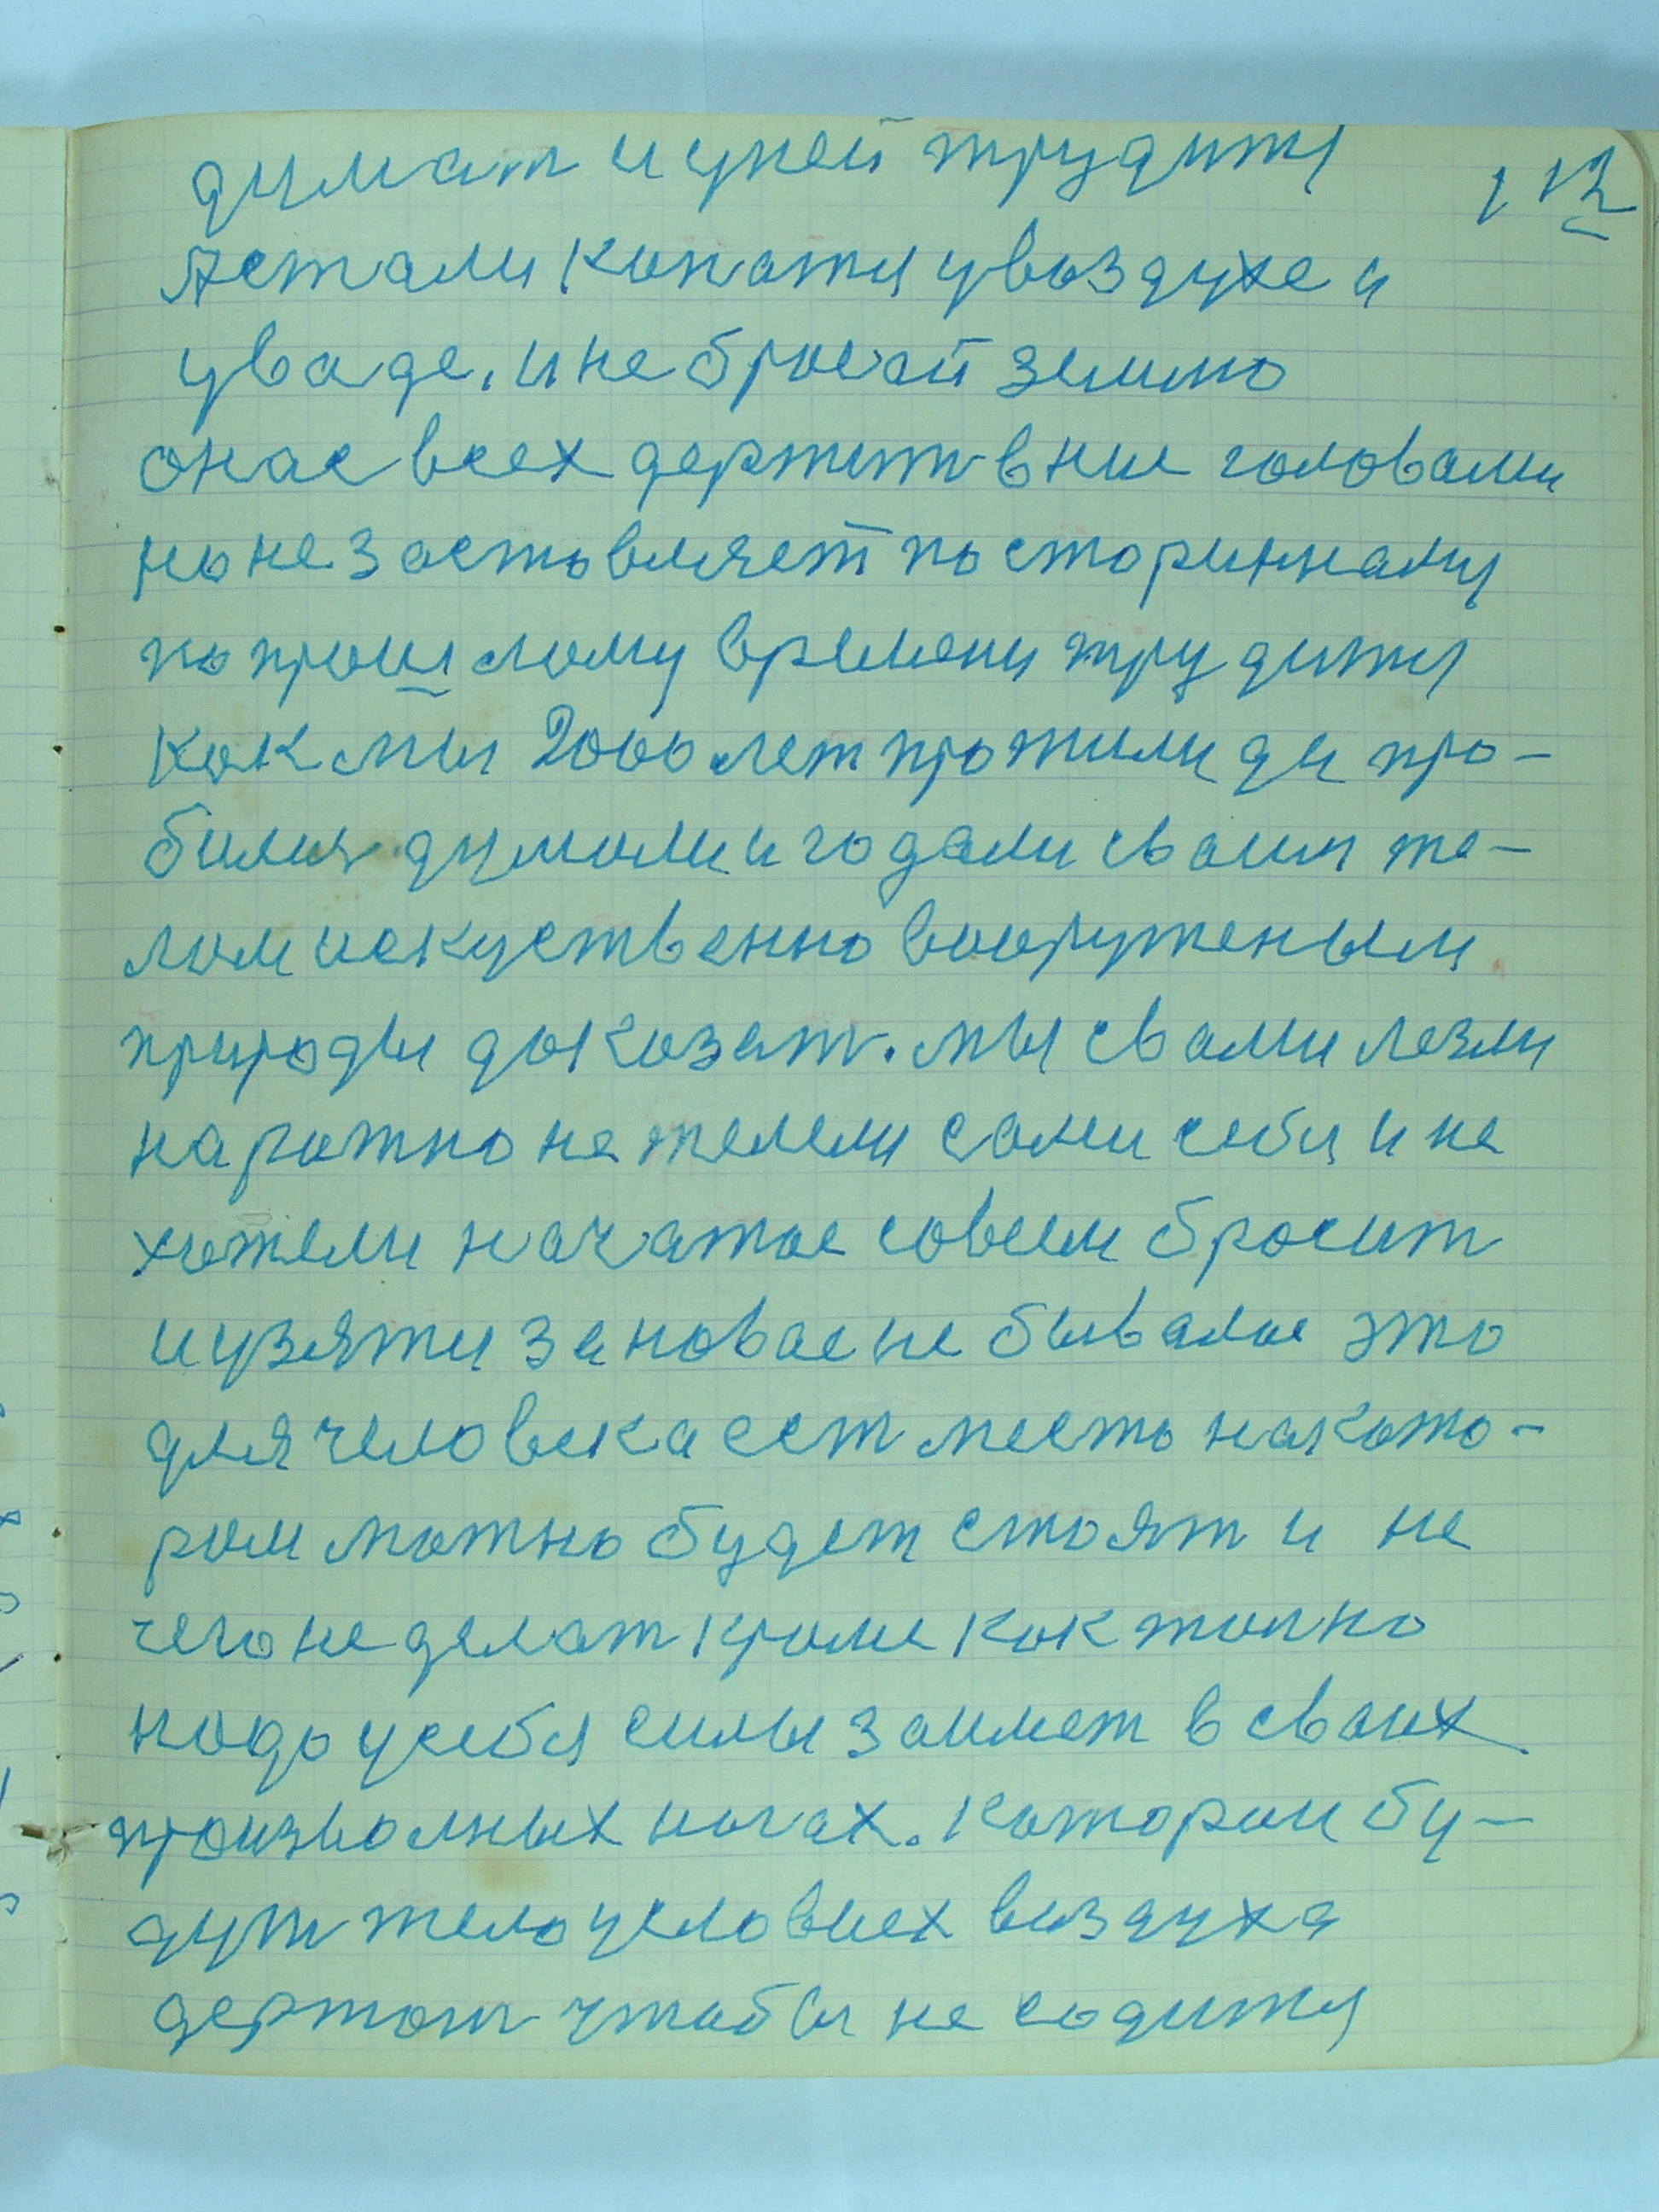 думат и уней трудитя
112
Астали копатя увоздухе и
уваде. и не бросай землю
онас всех держит вниз головами
но не заставляет постариннаму
попрошлому времени трудитя
как мы 2000 лет прожили да про-
былия думали и гадали сваим те-
лом искуственно вооруженым
природы доказат. мы свами лезли
на рожно не жалели сами себя и не
хотели начатое совсем бросит
и узяти за новое не бывалое это
для человека ест место накото-
ром можно будет стоят и не
чего не делат кроме как толко
надо усебя силы займет в сваих
произволных ногах. Которои бу-
дут тело уусловиех воздуха
держат чтобы не содитя